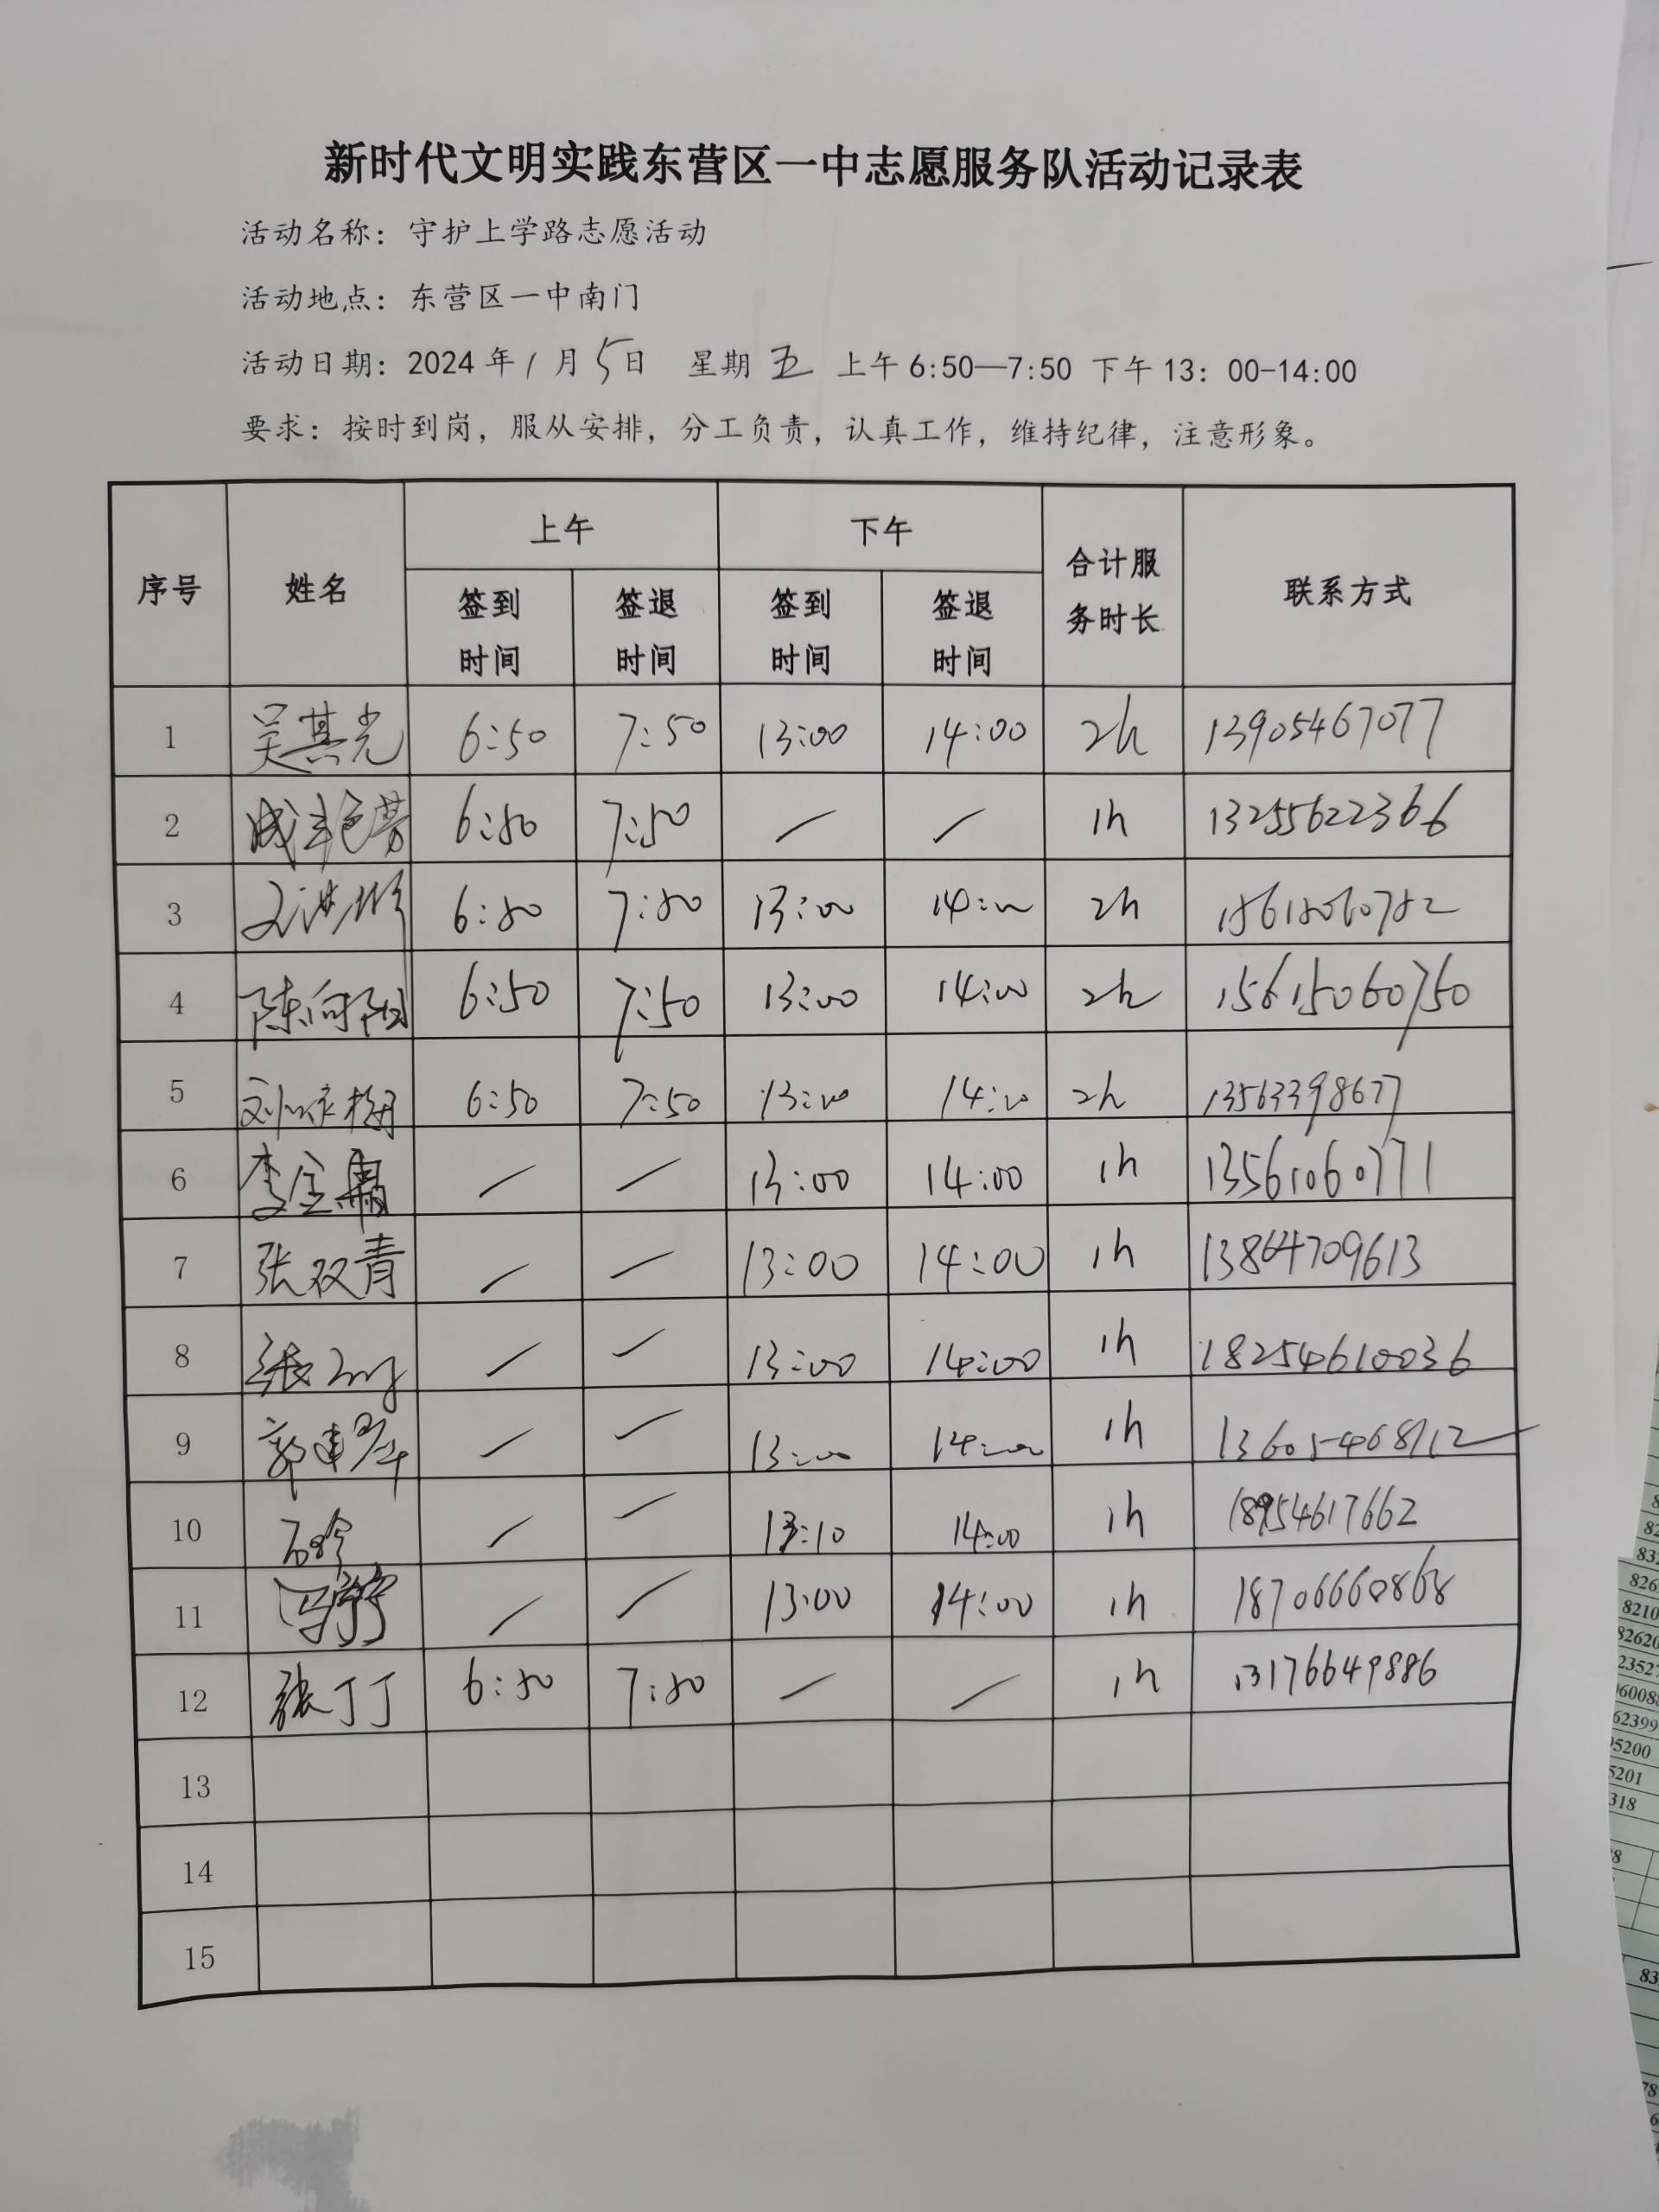 新时代文明实践东营区一中志愿服务队活动记录表
活动名称：守护上学路志愿活动
活动地点：东营区一中南门
活动日期：2024年1月5日 星期五 上午6:50—7:50 下午13：00-14:00
要求：按时到岗，服从安排，分工负责，认真工作，维持纪律，注意形象。
序号 姓名 上午 下午 合计服务时长 联系方式
签到时间 签退时间 签到时间 签退时间
1 吴其光 6:50 7:50 13:00 14:00 2h 13905467077
2 6:50 7:50 / / 1h 13255622366
3 6:50 7:50 13:00 14:00 2h
4 陈向阳 6:50 7:50 13:00 14:00 2h 15615060750
5 6:50 7:50 13:00 14:00 2h 13563398677
6 / / 13:00 14:00 1h 13561060771
7 张双青 / / 13:00 14:00 1h 13864709613
8 张 / / 13:00 14:00 1h 18254610036
9 / / 13:00 14:00 1h 13605468112
10 / / 13:10 14:00 1h 18954617662
11 / / 13:00 14:00 1h 18706660868
12 张丁丁 6:50 7:50 / / 1h 13176649886
13
14
15